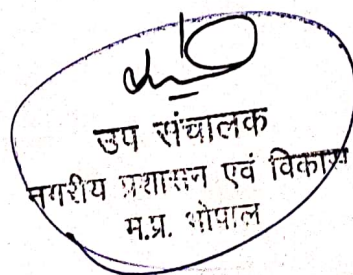 उप संचालक
नगरीय प्रशासन एवं विकास
म.प्र. भोपाल